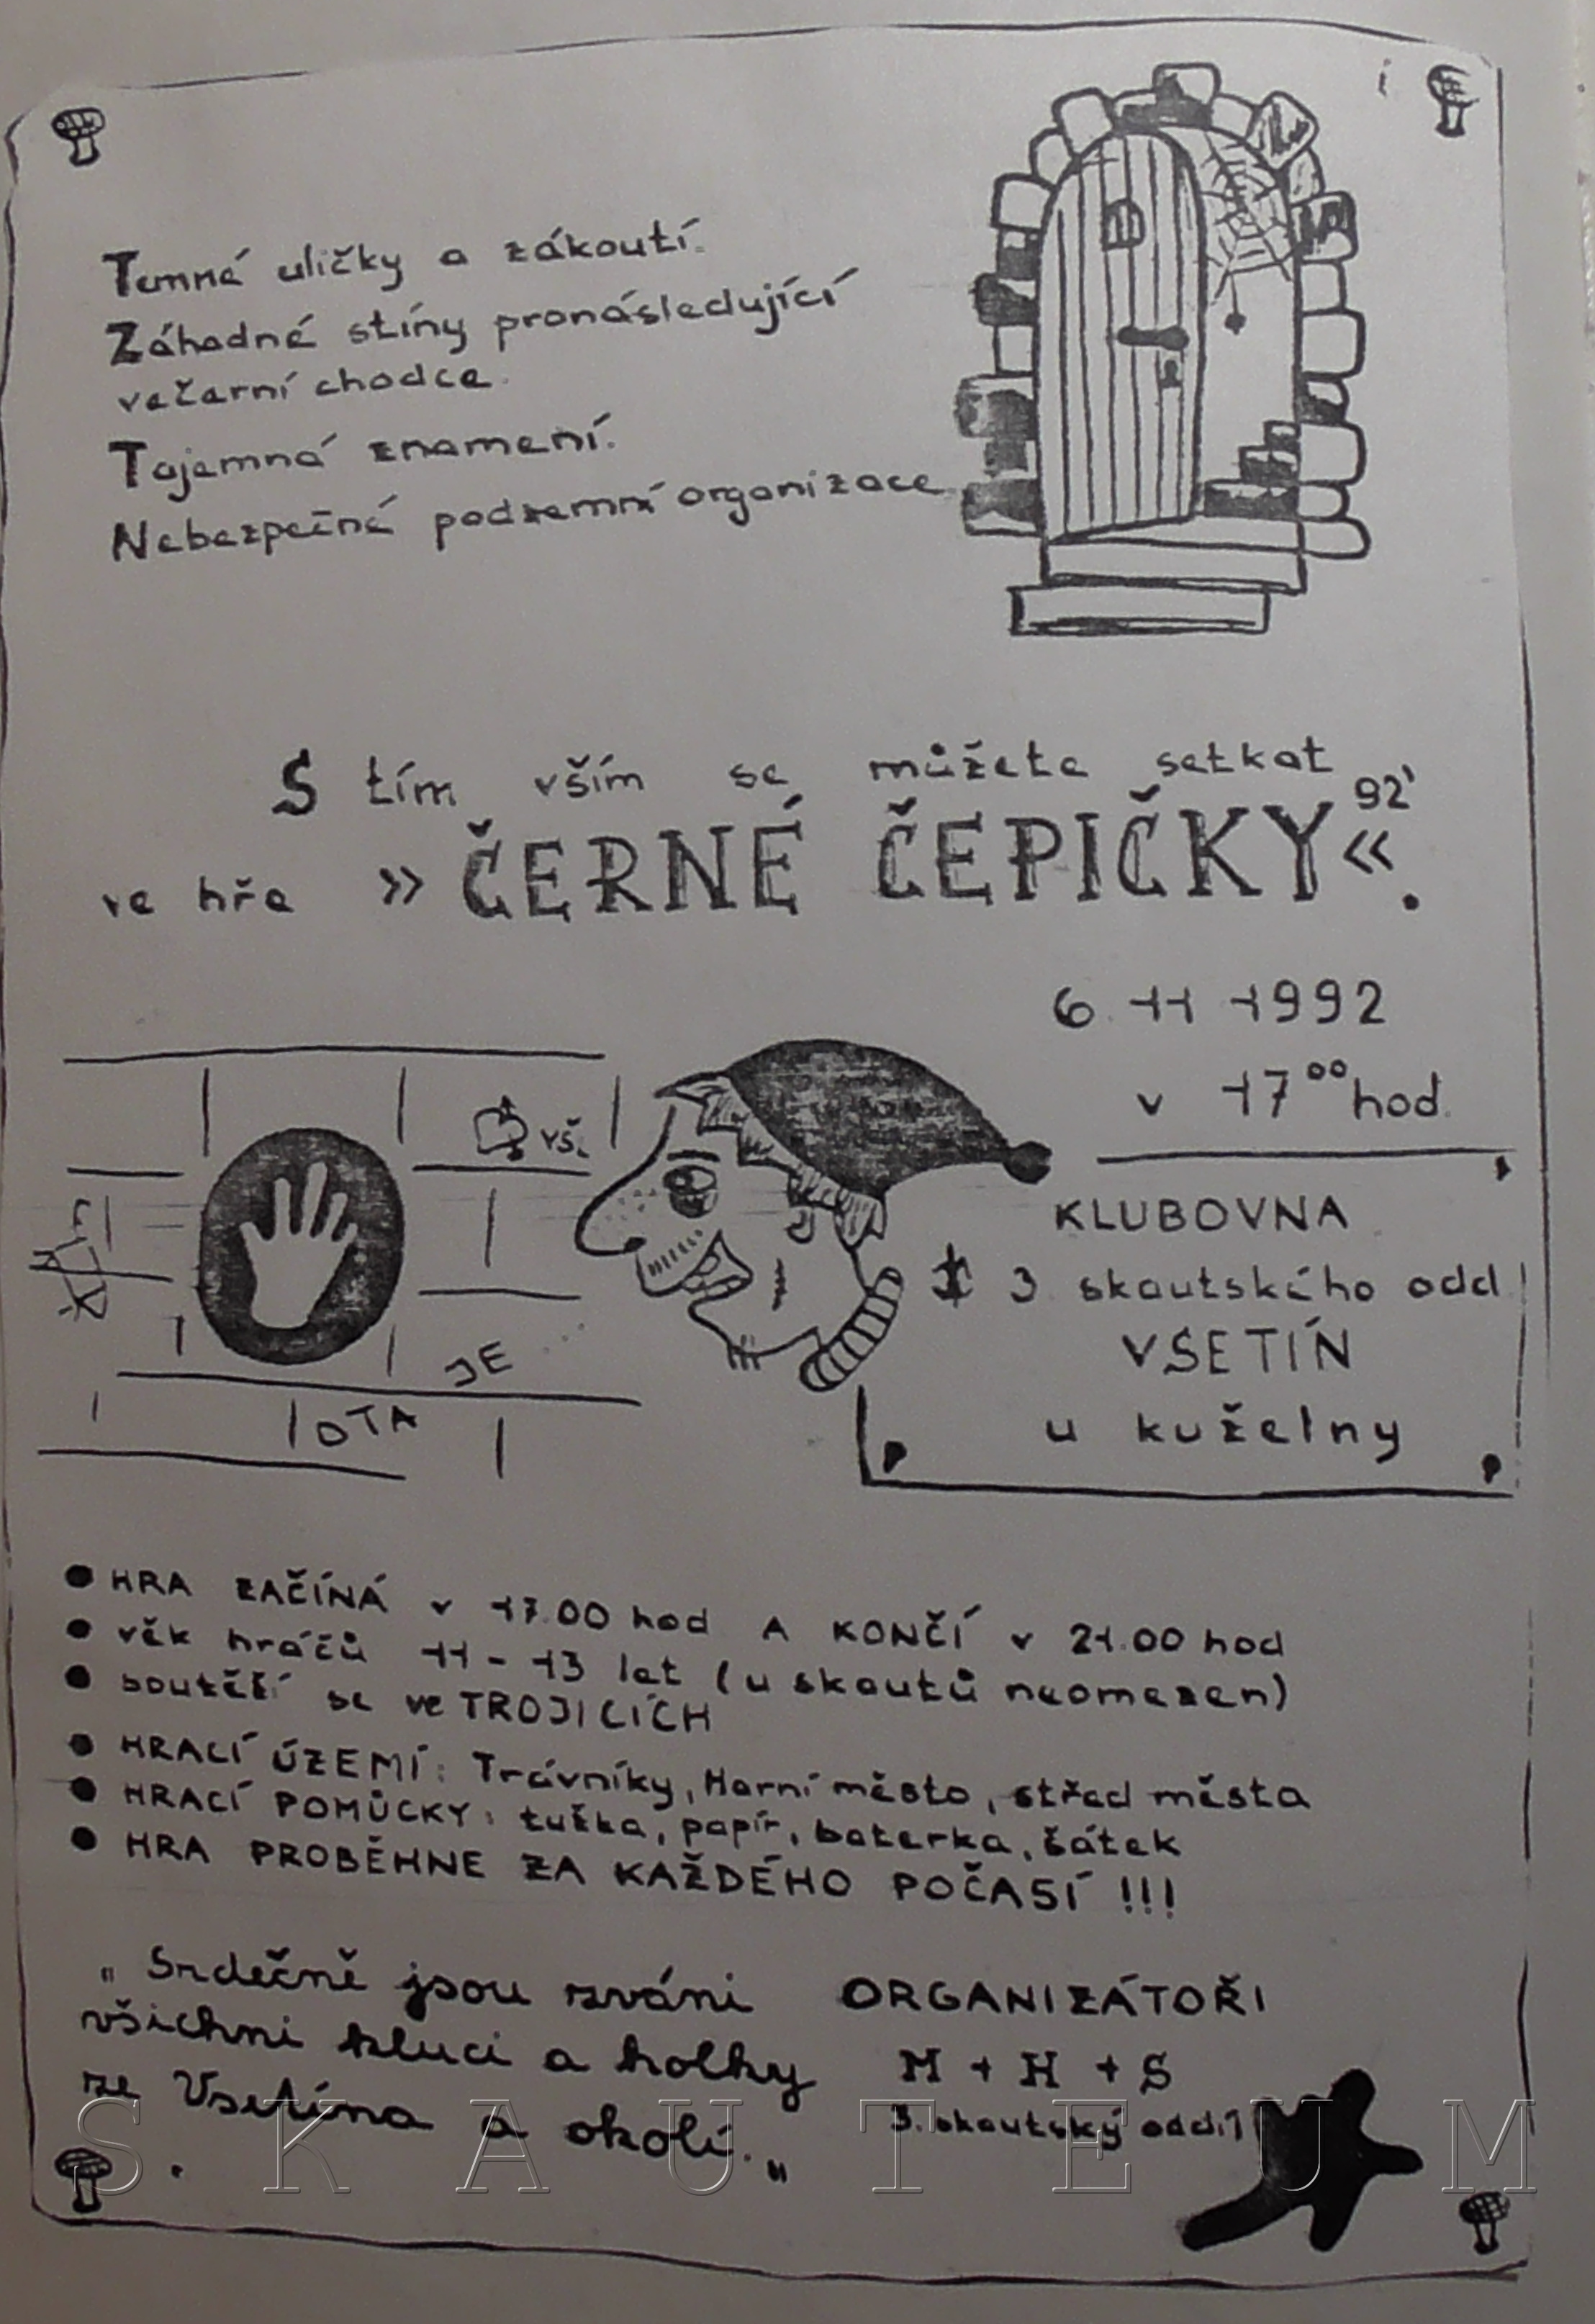 Temné uličky a zákoutí.
Záhadné stíny pronásledující
večerní chodce.
Tajemná znamení.
Nebezpečné podzemní organizace
S tím vším se můžete setkat
ve hře » ČERNÉ ČEPIČKY 92' «.
6. 11 1992
v 17⁰⁰ hod.
VŠ.
JE
OTA
KLUBOVNA
3. skautského odd.
VSETÍN
u kuželny
● HRA ZAČÍNÁ v 17.00 hod A KONČÍ v 21.00 hod
● věk hráčů 11 - 13 let (u skautů neomezen)
● soutěží se ve TROJICÍCH
● HRACÍ ÚZEMÍ: Trávníky, Horní město, střed města
● HRACÍ POMŮCKY: tužka, papír, baterka, šátek
● HRA PROBĚHNE ZA KAŽDÉHO POČASÍ !!!
„ Srdečně jsou zváni
všichni kluci a holky
ze Vsetína a okolí. „
ORGANIZÁTOŘI
M + H + S
3. skautský oddíl
SKAUTEUM